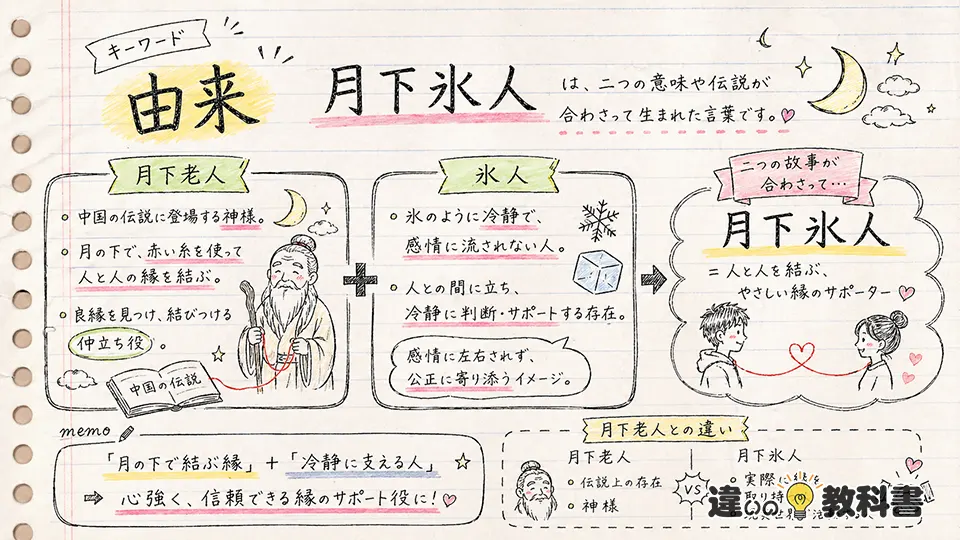 キーワード
由来
月下氷人
は、二つの意味や伝説が
合わさって生まれた言葉です。
月下老人
中国の伝説に登場する神様。
月の下で、赤い糸を使って
人と人の縁を結ぶ。
良縁を見つけ、結びつける
仲立ち役。
中国の伝説
氷人
氷のように冷静で、
感情に流されない人。
人との間に立ち、
冷静に判断・サポートする存在。
感情に左右されず、
公正に寄り添うイメージ。
二つの故事が
合わさって…
月下氷人
=人と人を結ぶ、
やさしい縁のサポーター
memo
「月の下で結ぶ縁」+「冷静に支える人」
⇒ 心強く、信頼できる縁のサポート役に!
月下老人との違い
月下老人
伝説上の存在
神様
VS
月下氷人
実際
取り持
違いの教科書